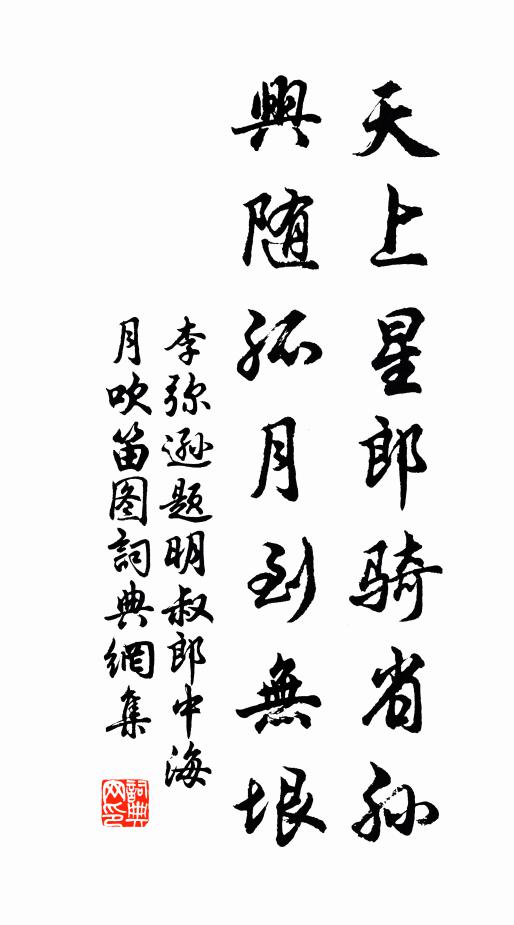 天上星郎骑省孙
興随孤月到無垠
李弥逊题明叔郎中海
月吹笛图詞典網集
詞典网印